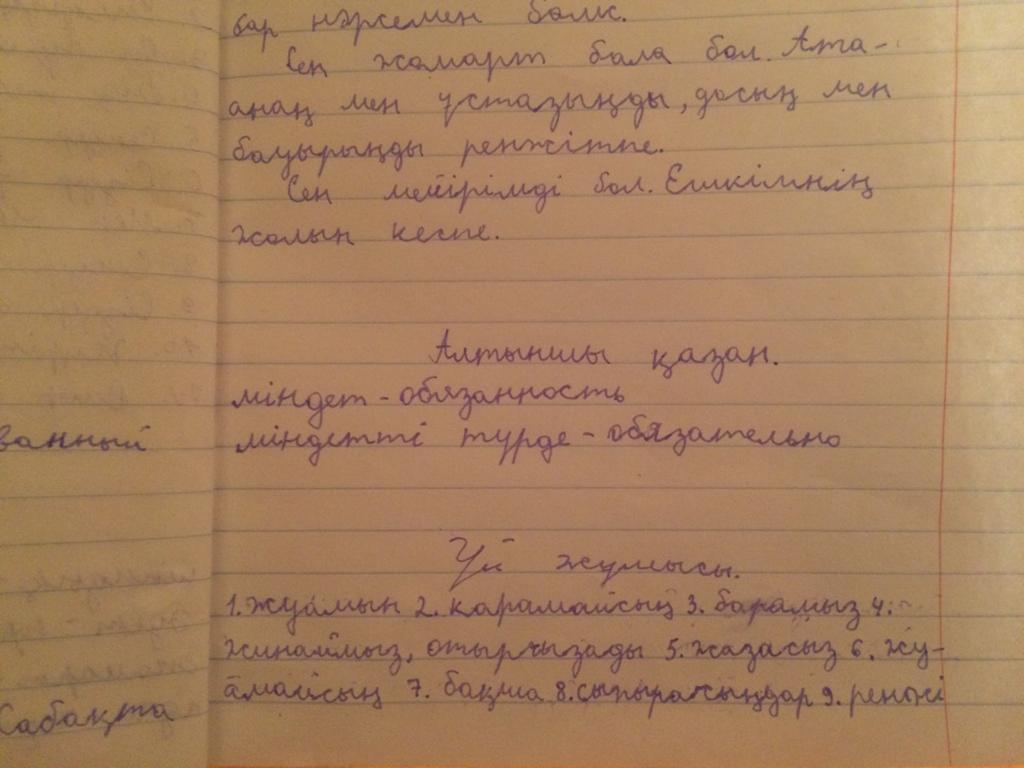 бар нәрсемен бөліс.
Сен жомарт бала бол. Ата-
анаң мен ұстазыңды, досың мен
бауырыңды ренжітпе.
Сен мейірімді бол. Ешкімнің
жолын кеспе.
Алтыншы қазан.
міндет - обязанность
ванный
міндетті түрде - обязательно
Үй жұмысы.
1. жуамын 2. қарамайсың 3. барамыз 4.
жинаймыз, отырғызады 5. жазасыз 6. жу-
амайсың 7. бақша 8. сыпырасыңдар 9. ренжі
Сабақта